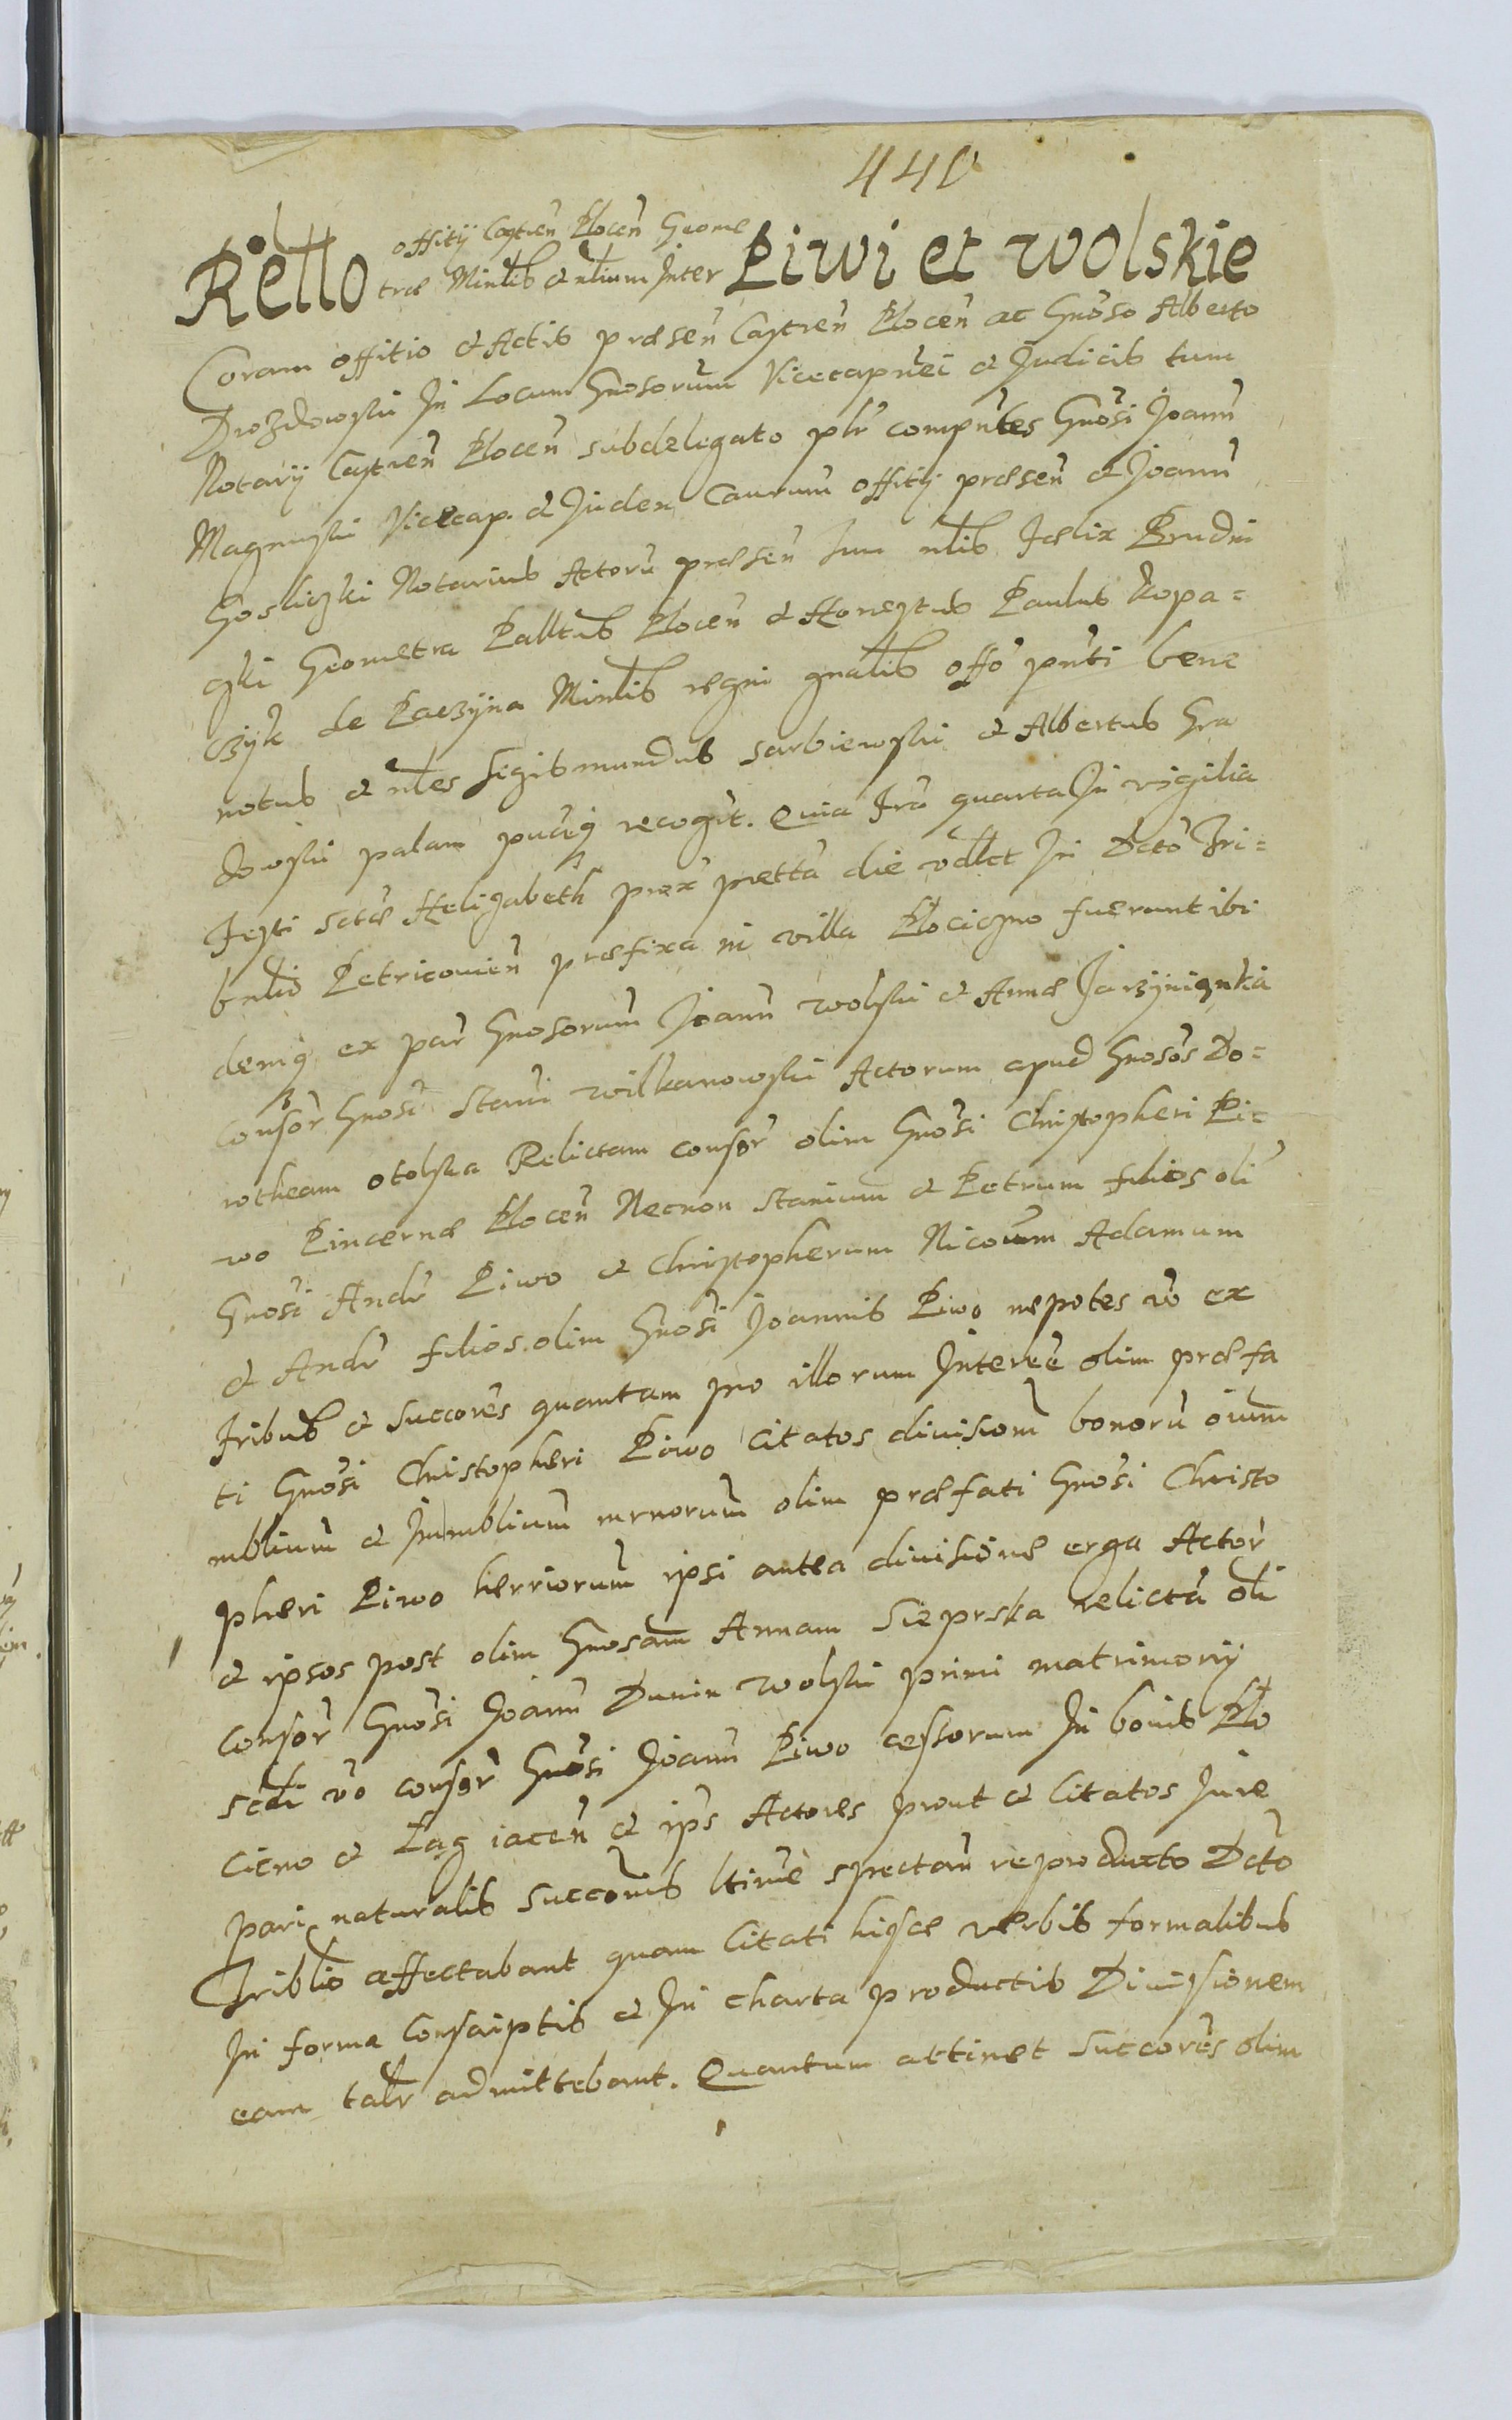 440
Rello offitij Castren Plocen Geome
træ Minlis & nlium Inter Piwi et Wolskie
Coram offitio & Actis præsen Castren Plocen ac Gnoso Alberto
Drozdowski In Locum Gnosorum Vicecapnei & Judicis tum
Notarij Castren Plocen subdelegato plr compntes Gnosi Joann
Magnuski Vicecap. & Judex Caurum offitij præsen & Joann
Gosliczki Notarius Actoru præsen tum nlis Fælix Brudni
cki Geometra Palltus Plocen & Honestus Paulus Kopa=
czÿk de Laczÿna Minlis regni gnalis offo pnti bene
notus & nles Segismundus Sarbiewski & Albertus Gra
dowski palam puceq recogt. Quia Fra quarta In vigilia
Festi sctæ Helizabeth prox prætta die vdlct In Dcto Tri=
bnli Petricovien præfixa in villa Plociczno fuerunt ibi
demq ex par Gnosorum Joann Wolski & Annæ Jarzÿnianka
Consor Gnosi Stani Wilkanowski Actorum apud Gnosos Do=
rotheam Otolska Relictam consor olim Gnosi Christopheri Pi=
wo Pincernæ Plocen Necnon Stanium & Petrum filios oli
Gnosi Andr Piwo & Christopherum Nicoum Adamum
& Andr filios olim Gnosi Joannis Piwo nepotes vo ex
Fribus & Succores quantam pro illorum Interee olim præfa
ti Gnosi Christopheri Piwo Citatos divisiom bonoru oium
mblium & Immblium mrnorum olim præfati Gnosi Christo
pheri Piwo herriorum ipsi antea divisione erga Actor
& ipsos post olim Gnosam Annam Sieprska relicta oli
Consor Gnosi Joann Dunin Wolski primi matrimonij
scdi vo consor Gnosi Joann Piwo cessorum In bonis Plo
ciczno & Łag iacen & ips Actores prout & Citatos Jure
pari naturalis succonis ltime spectan reproducto Dcto
Triblio affectabant quam Citati hisce verbis formalibus
In forma Conscriptis & In charta productis Divisionem
eam talr admittebant. Quantum attinet Succores olim